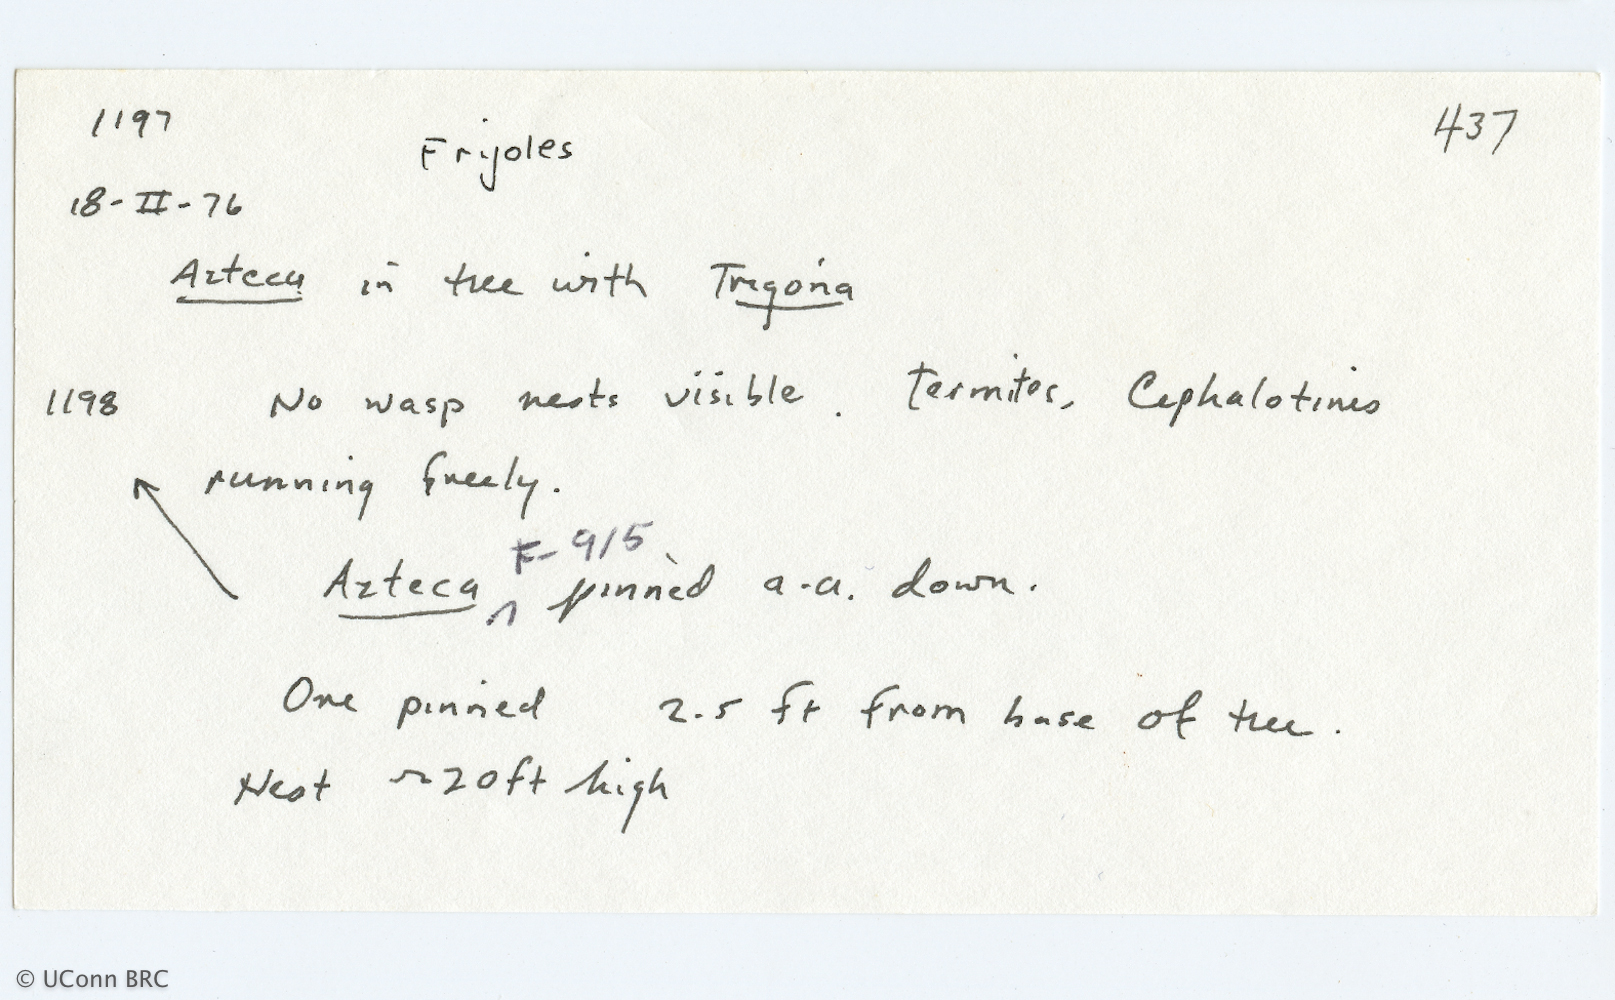 1197
Frijoles
437
18-II-76
Azteca in tree with Tragona
1198 No wasp nests visible. Termites, Cephalotines
running freely.
F-915
Azteca ^ pinned a.-a. down.
One pinned 2.5 ft from base of tree.
Nest ~20ft high
© UConn BRC